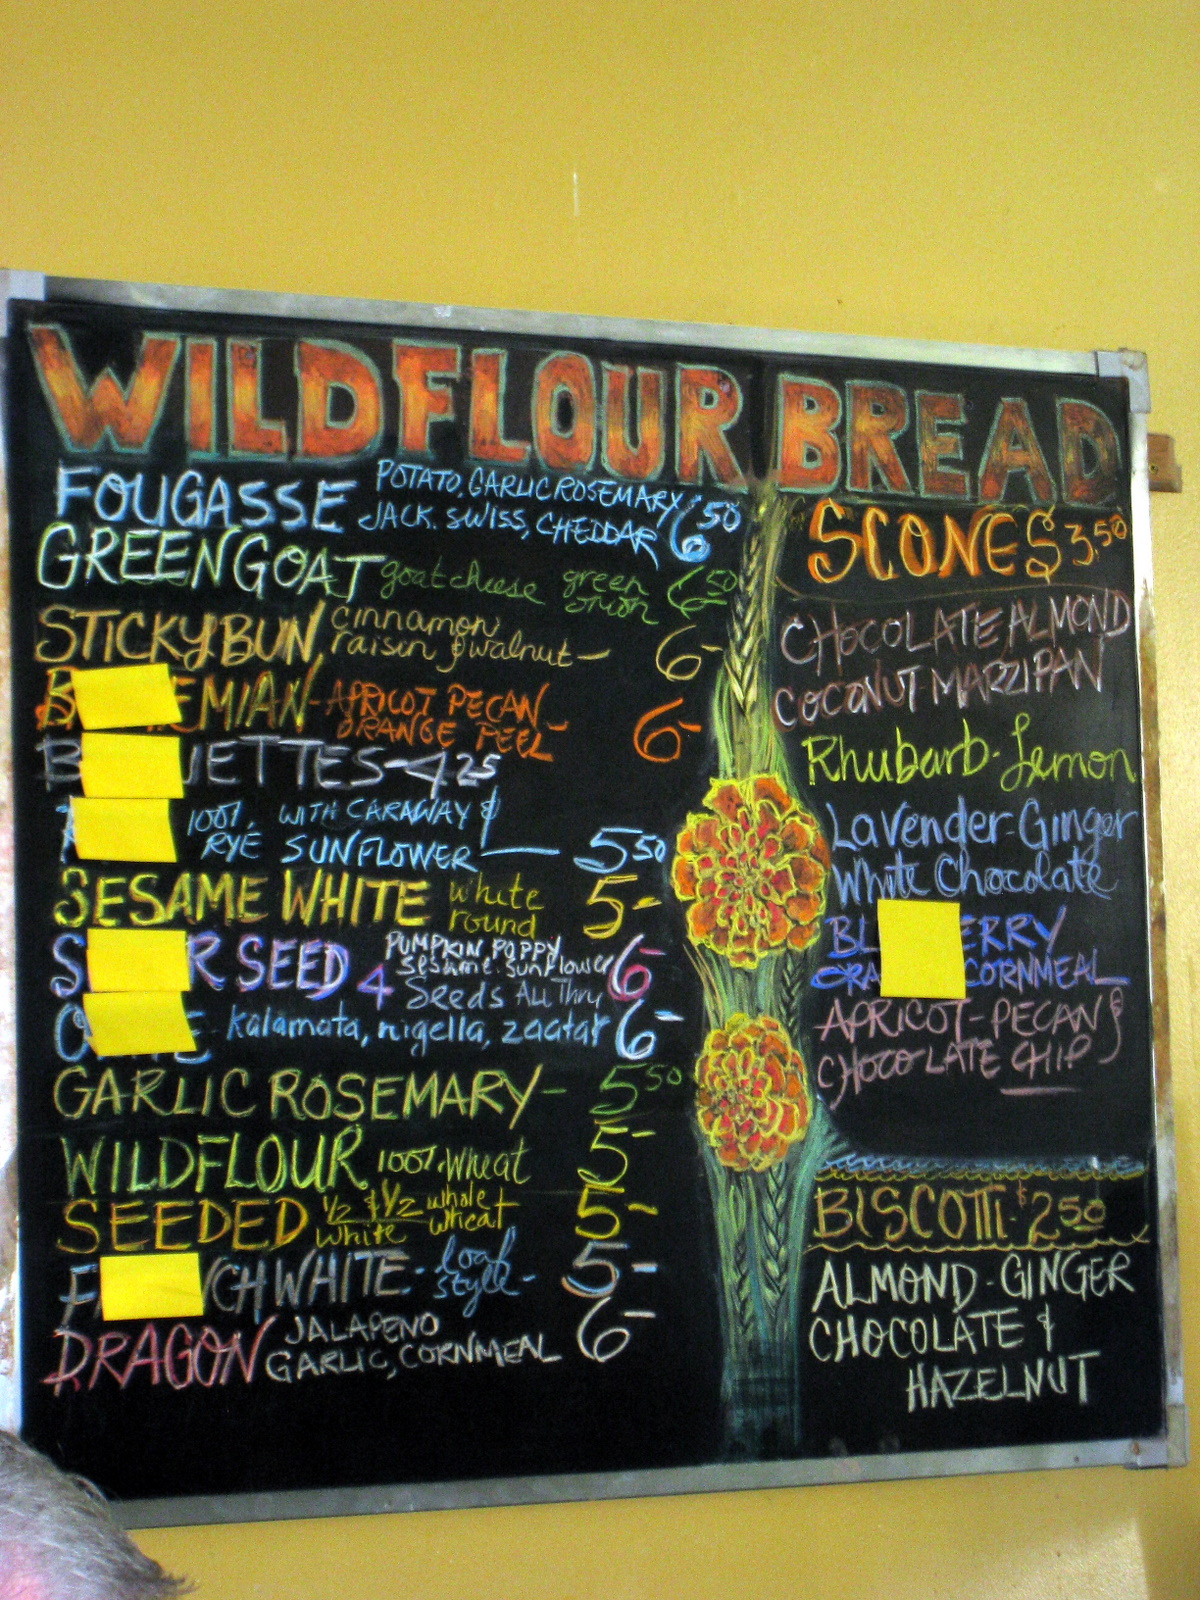 WILDFLOUR BREAD
FOUGASSE POTATO, GARLIC ROSEMARY 6 50
JACK, SWISS, CHEDDAR
GREEN GOAT goat cheese green onion 6 50
STICKY BUN, cinnamon, 6-
raisin & walnut -
APRICOT PECAN 6-
ORANGE PEEL
-4.25
100% RYE WITH CARAWAY &
SUNFLOWER - 5 50
SESAME WHITE white round 5-
SEED 4 PUMPKIN POPPY 6-
Sesame. Sunflower
Seeds All Thru
kalamata, nigella, zaatar 6-
GARLIC ROSEMARY - 5 50
WILDFLOUR 100% Wheat 5-
SEEDED 1/2 white & 1/2 whole wheat 5-
WHITE - loaf style - 5-
DRAGON JALAPENO 6-
GARLIC, CORNMEAL
SCONES 3.50
CHOCOLATE ALMOND
COCONUT-MARZIPAN
Rhubarb-Lemon
Lavender-Ginger
White Chocolate
CORNMEAL
APRICOT-PECAN &
CHOCOLATE CHIP
BISCOTTI-$2 50
ALMOND-GINGER
CHOCOLATE &
HAZELNUT